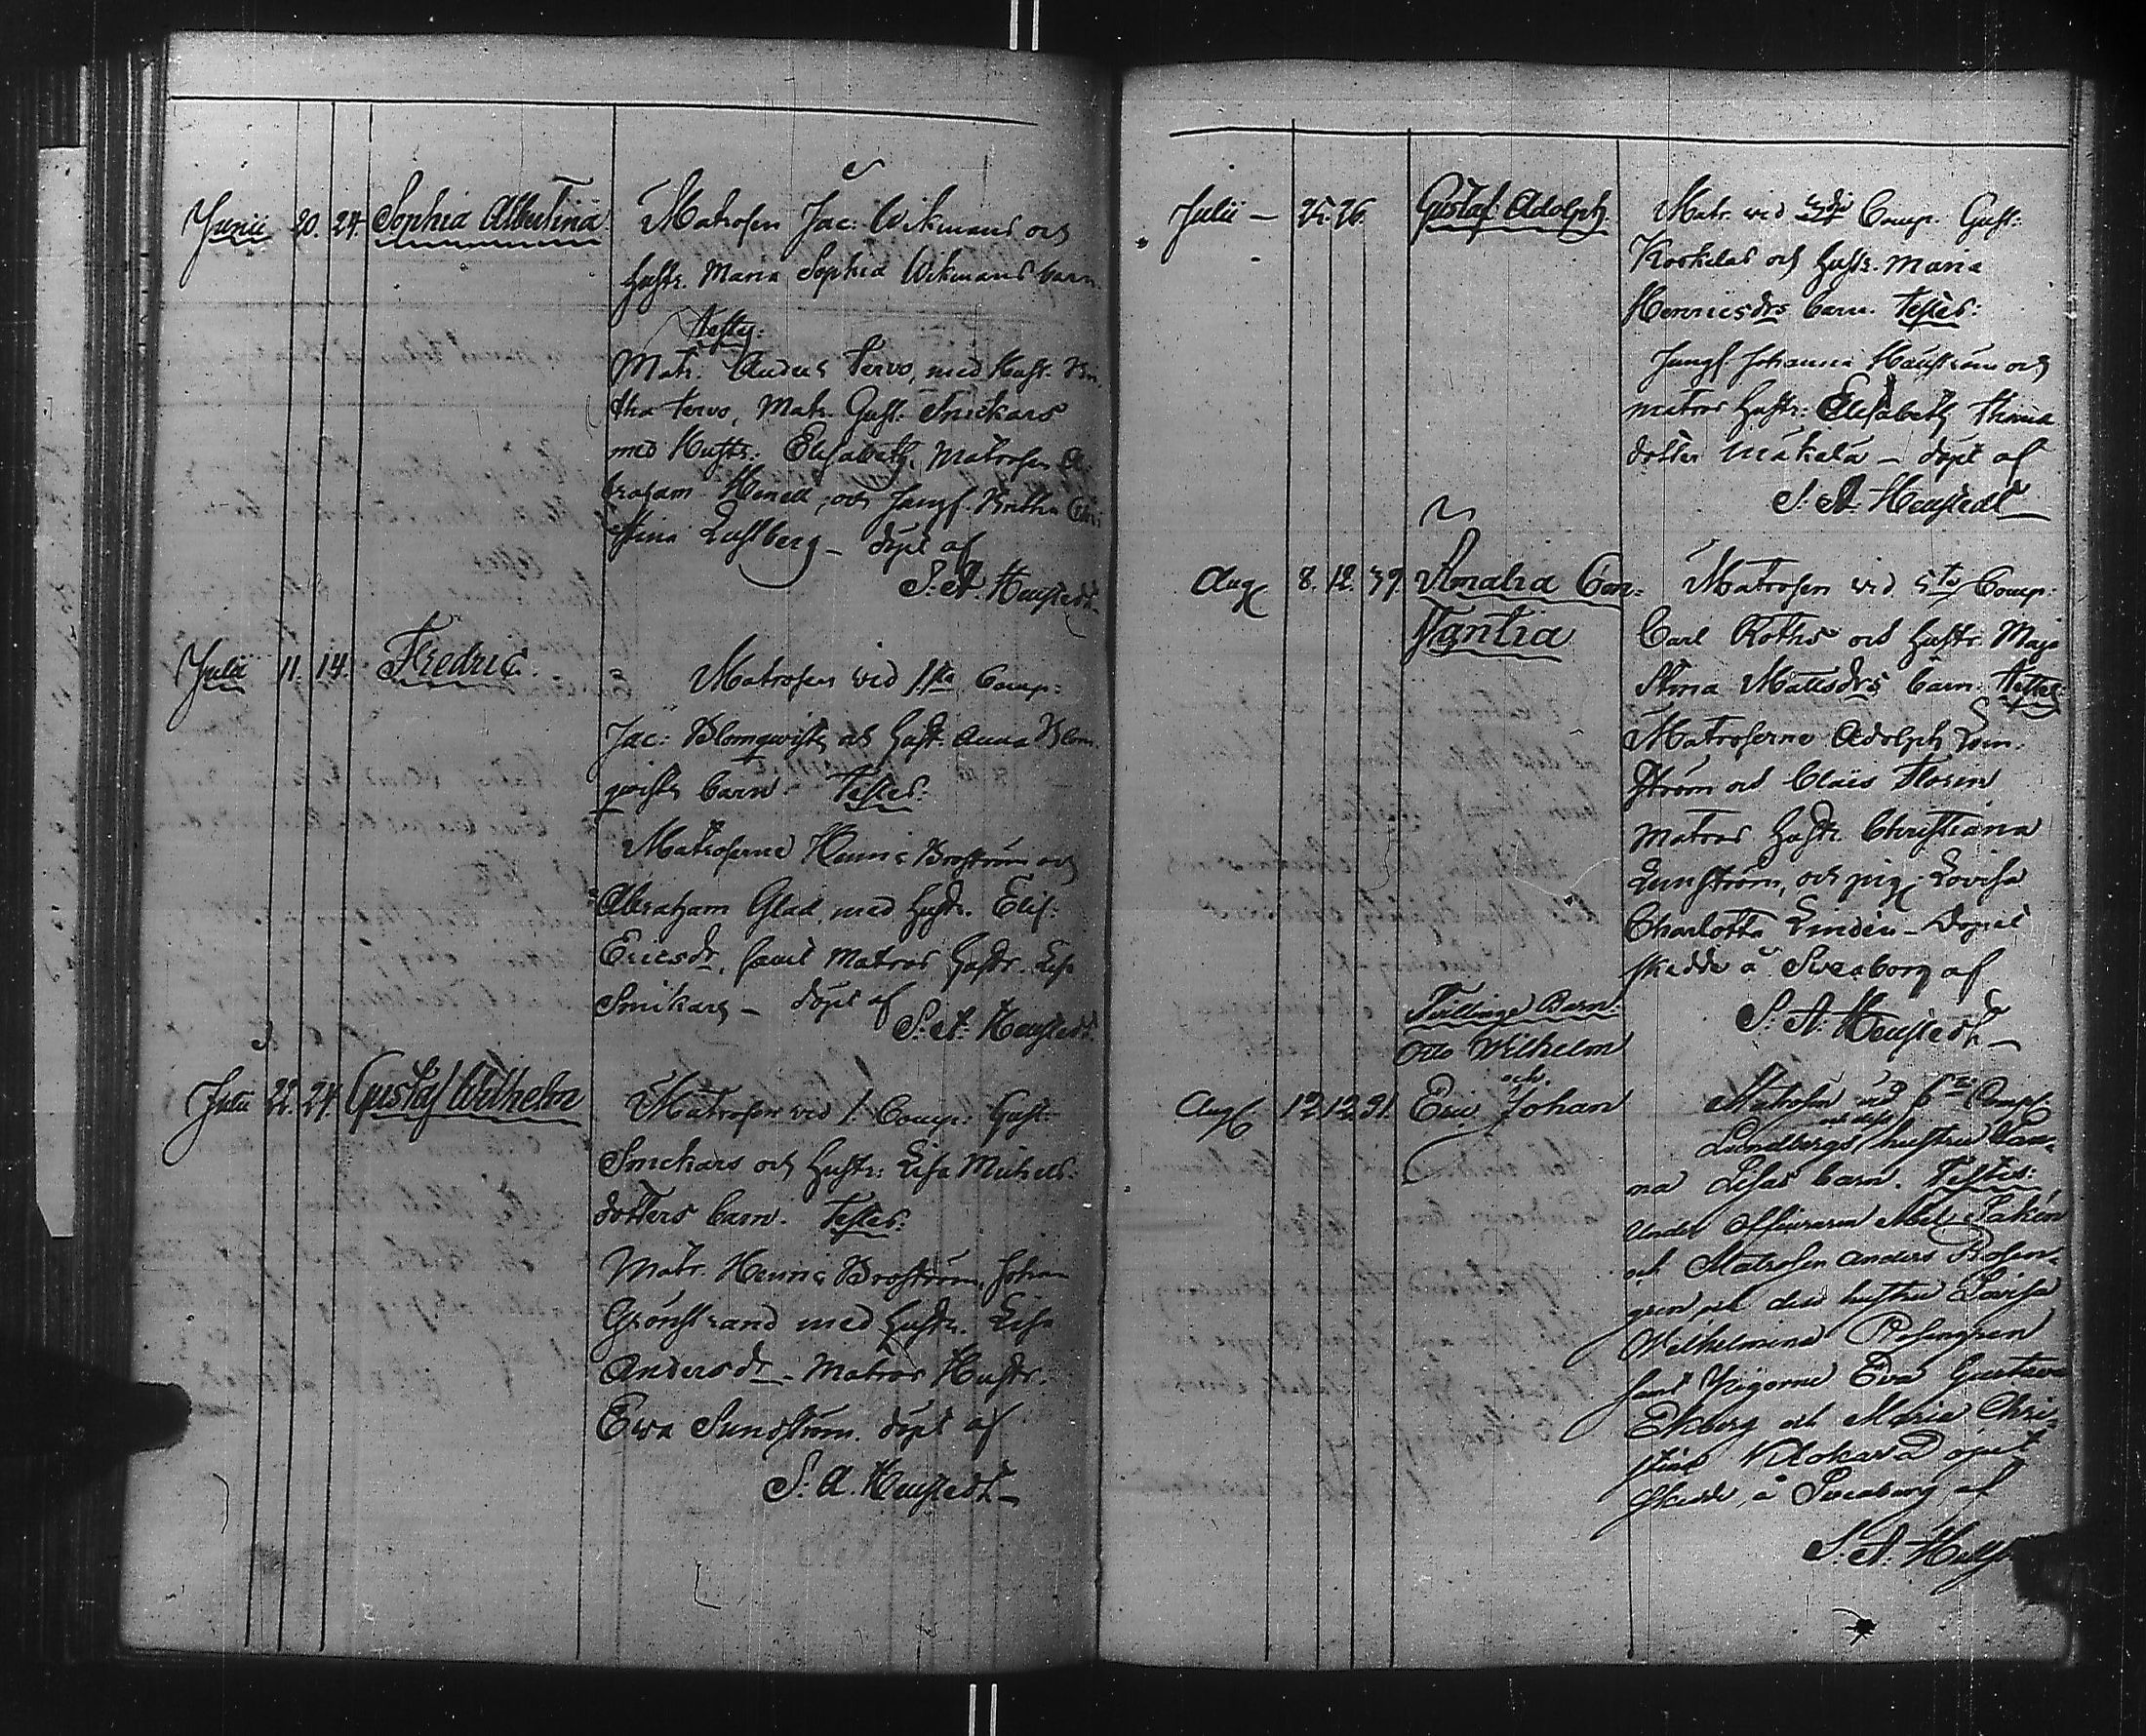 Junii 20. 24. Sophia Albertina
Matrosen Jac: Wikmans och
hustr. Maria Sophia Wikmans barn.
testes:
Matr. Anders Tervo, med Hustr. Bri
tha Tervo, Matr. Gust. Snickars
med Hustr. Elisabeth, Matrosen A
braham Henell, och Jungf. Britha Chri
stina Lustberg – döpt af
S. A. Heustedt
Julii 11. 14. Fredric.
Matrosen vid 1sta Comp:
Jac: Blomqwists och hust. Anna Blom
qwists barn. Testes:
Matroserne Henric Broström och
Abraham Glad, med hustr. Elis:
Ericsdr, samt Matros hustr. Lisa
Snikars – döpt af
S. A. Heustedt.
Julii 22. 24. Gustaf Wilhelm
Matrosen vid 1. Comp: Gust.
Snickars och hustr: Lisa Michels
dotters barn. Testes:
Matr. Henric Broström, Johan
Grönstrand med hustr. Lisa
Andersdr – Matros Hustr.
Ewa Sundström. döpt af
S. A. Heustedt –
Julii – 25. 26. Gustaf Adolph.
Matr. vid Comp. Gust:
Koskelas och hustr. Maria
Henricsdrs barn. Testes:
Jungf Johanna och
matros hustr: Elisabeth
dotter Mäkelä – döpt af
S. A. Heustedt –
Aug 8. 12. 39. Amalia Con=
stantia
Matrosen vid 5te Comp:
Carl Roths och hustr. Maja
Stina Mattsdrs barn. testes
Matroserne Adolph Lun
ström och Claës Floren
Matros hustr. Christiana
Lunström, och pig. Lovisa
Charlotta Lindén – Döpel
skedde å Sveaborg af
S. A. Heustedt –
Tvillinge Barn:
Otto Wilhelm
och
Aug 12. 12. 31. Eric Johan
Matrosen vid 6te Comp.
och dess
Lundbergs hustru
na Lisas barn. Testes:
Under officeraren Abel Lakén
och Matrosen Anders Rosen=
gren och dess hustru Lovisa
Wilhelmina Rosengren
samt Pigorna Eva Gustava
Ekberg och Maria Chri=
stina döpet
skedde å Sveaborg af
S. A.